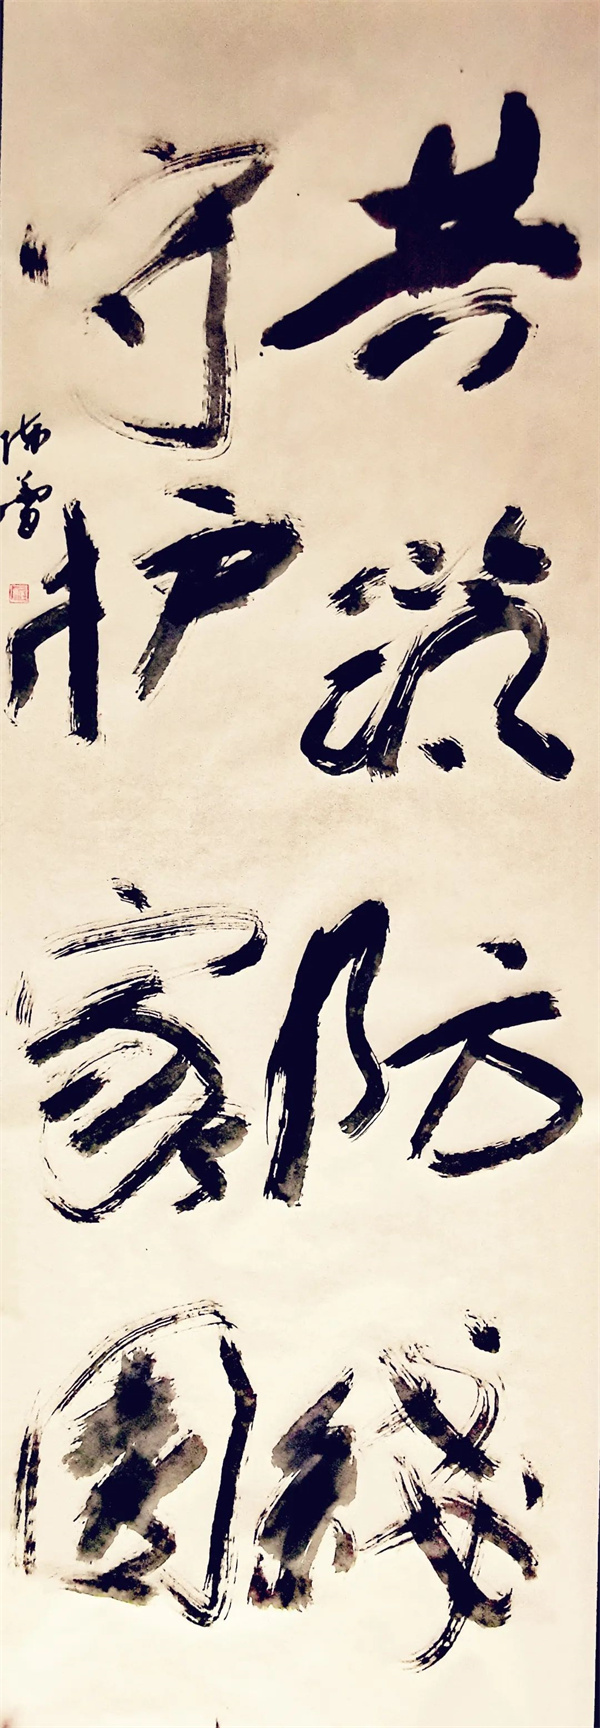 共筑防线
守护家园